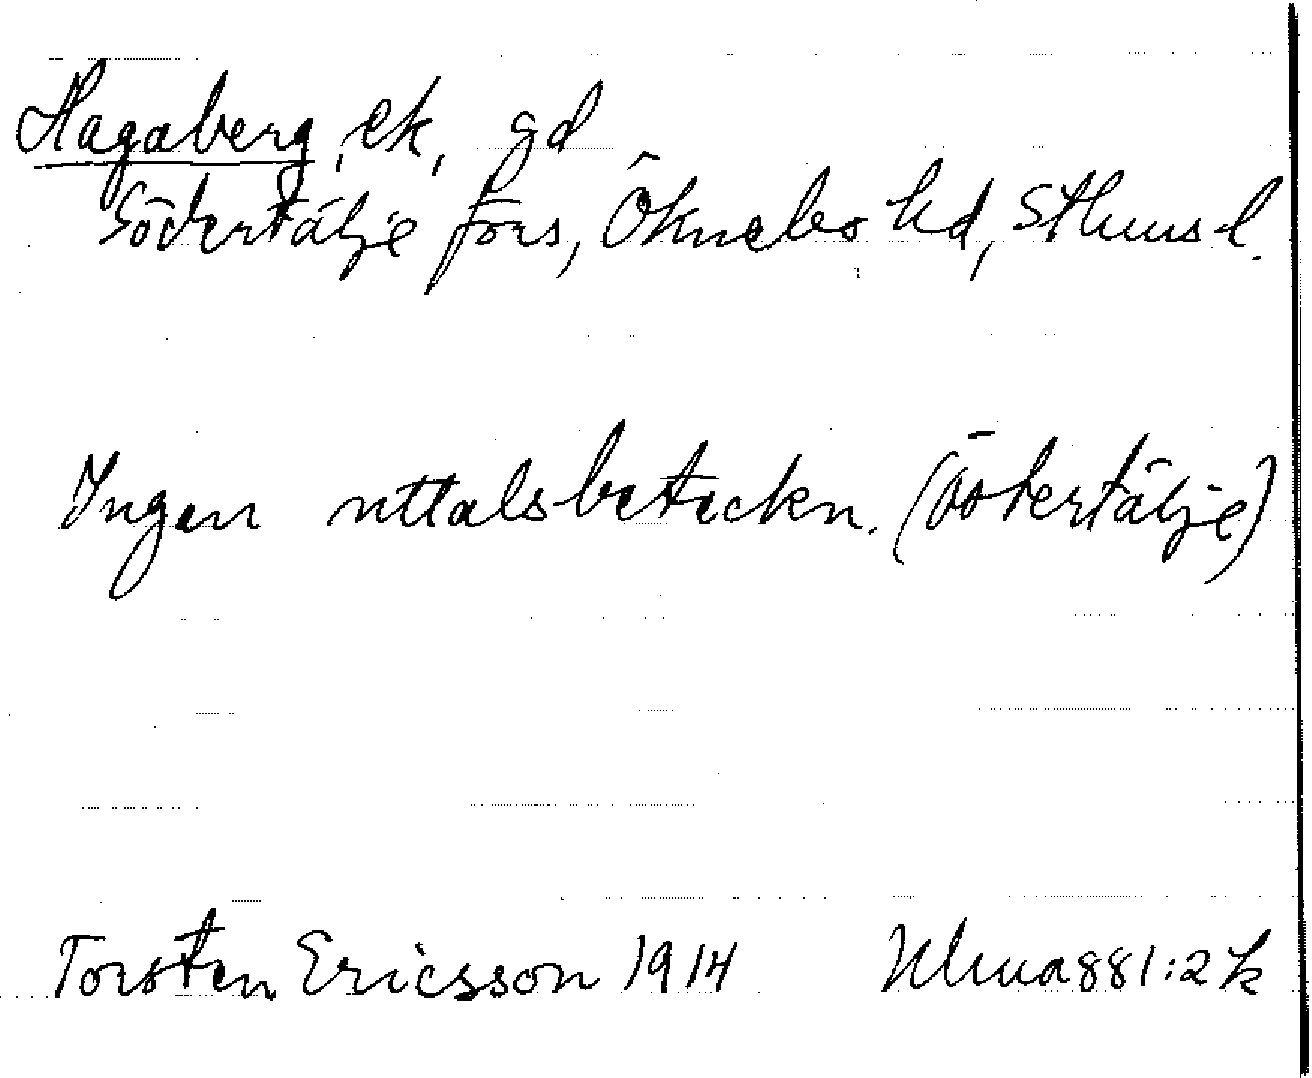 Hagaberg, ek, gd
Södertälje förs, Öknebo hd, Sthms l.
Ingen uttalsbeteckn. (Östertälje)
Torsten Ericsson 1914 Ulma 881:2 k